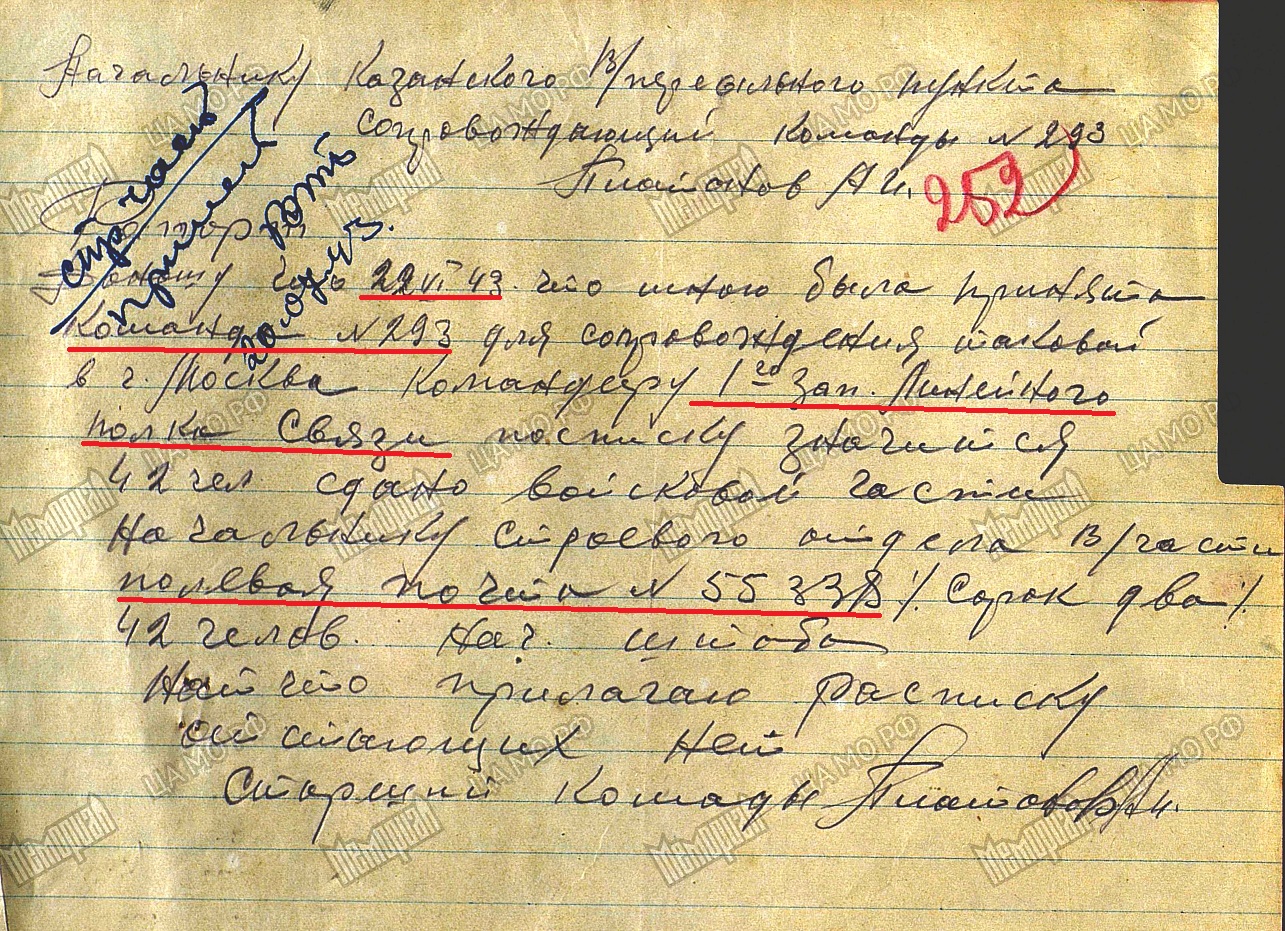 Начальнику Казанского В/пересыльного пункта
сопровождающий команды N 293
Платонов А И.
252
Рапорт
Доношу что 22 VI 43 что мною была принята
команда N 293 для сопровождения таковой
в г. Москва Командеру 1го Зап. Линейного
полка Связи посписку значится
42 чел сдано войсковой части
Начальнику Строевого отдела В/части
полевая почта N 55338 /. Сорок два /.
42 челов. Нач. штаба
Начто прилагаю расписку
отстающих нет
Старший Команды Платонов А И.
стр часть
ЦАМО РФ
Мемориал